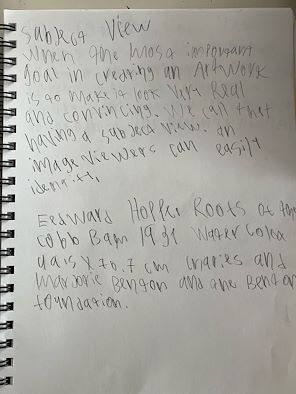 Subject View
When the most important
goal in creating an Artwork
is to make it look very Real
and convincing. We call that
having a subject view. an
image viewers can easily
identify.
Edward Hopper Roots of the
Cobb Barn 1931 Water Color
x 70.7 cm Charles and
Marjorie Benton and the Benton
foundation.